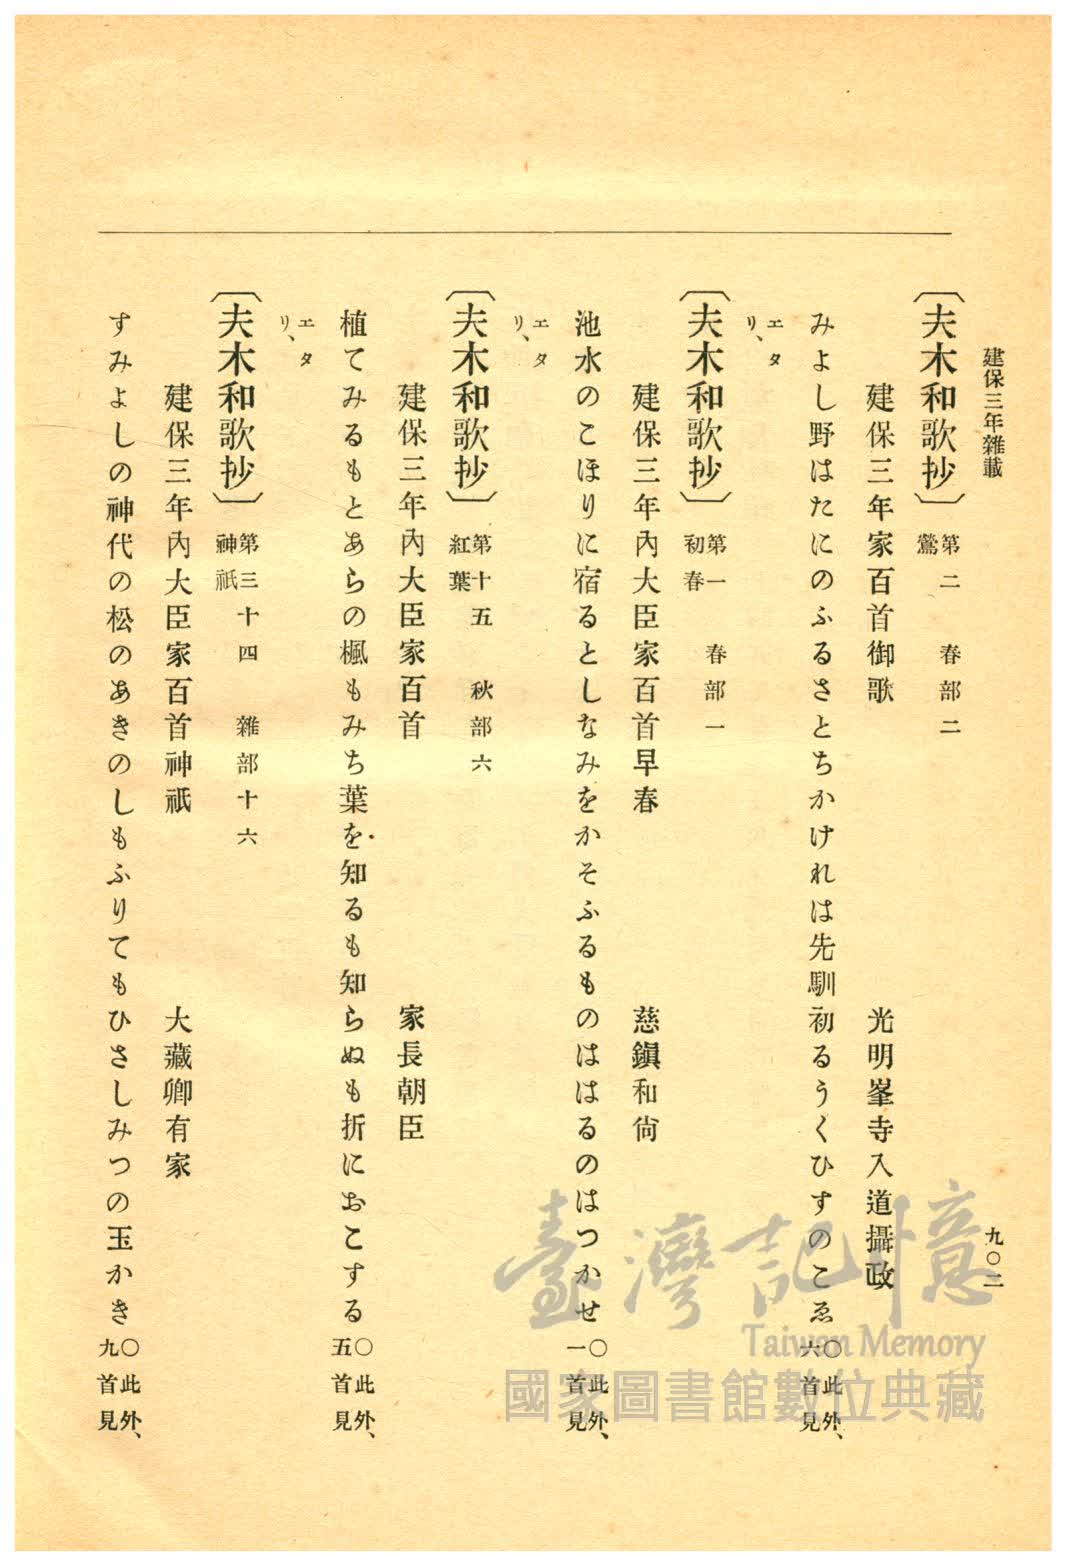 建保三年雜載
九〇二
〔夫木和歌抄〕第二　春部二
鶯
建保三年家百首御歌　光明峯寺入道攝政
みよし野はたにのふるさとちかけれは先馴初るうくひすのこゑ〇此外、
六首見
エタ
リ、
〔夫木和歌抄〕第一　春部一
初春
建保三年內大臣家百首早春　慈鎭和尙
池水のこほりに宿るとしなみをかそふるものははるのはつかせ〇此外、
一首見
エタ
リ、
〔夫木和歌抄〕第十五　秋部六
紅葉
建保三年內大臣家百首　家長朝臣
植てみるもとあらの楓もみち葉を知るも知らぬも折におこする〇此外、
五首見
エタ
リ、
〔夫木和歌抄〕第三十四　雜部十六
神祇
建保三年內大臣家百首神祇　大藏卿有家
すみよしの神代の松のあきのしもふりてもひさしみつの玉かき〇此外、
九首見
臺灣記憶
Taiwan Memory
國家圖書館數位典藏